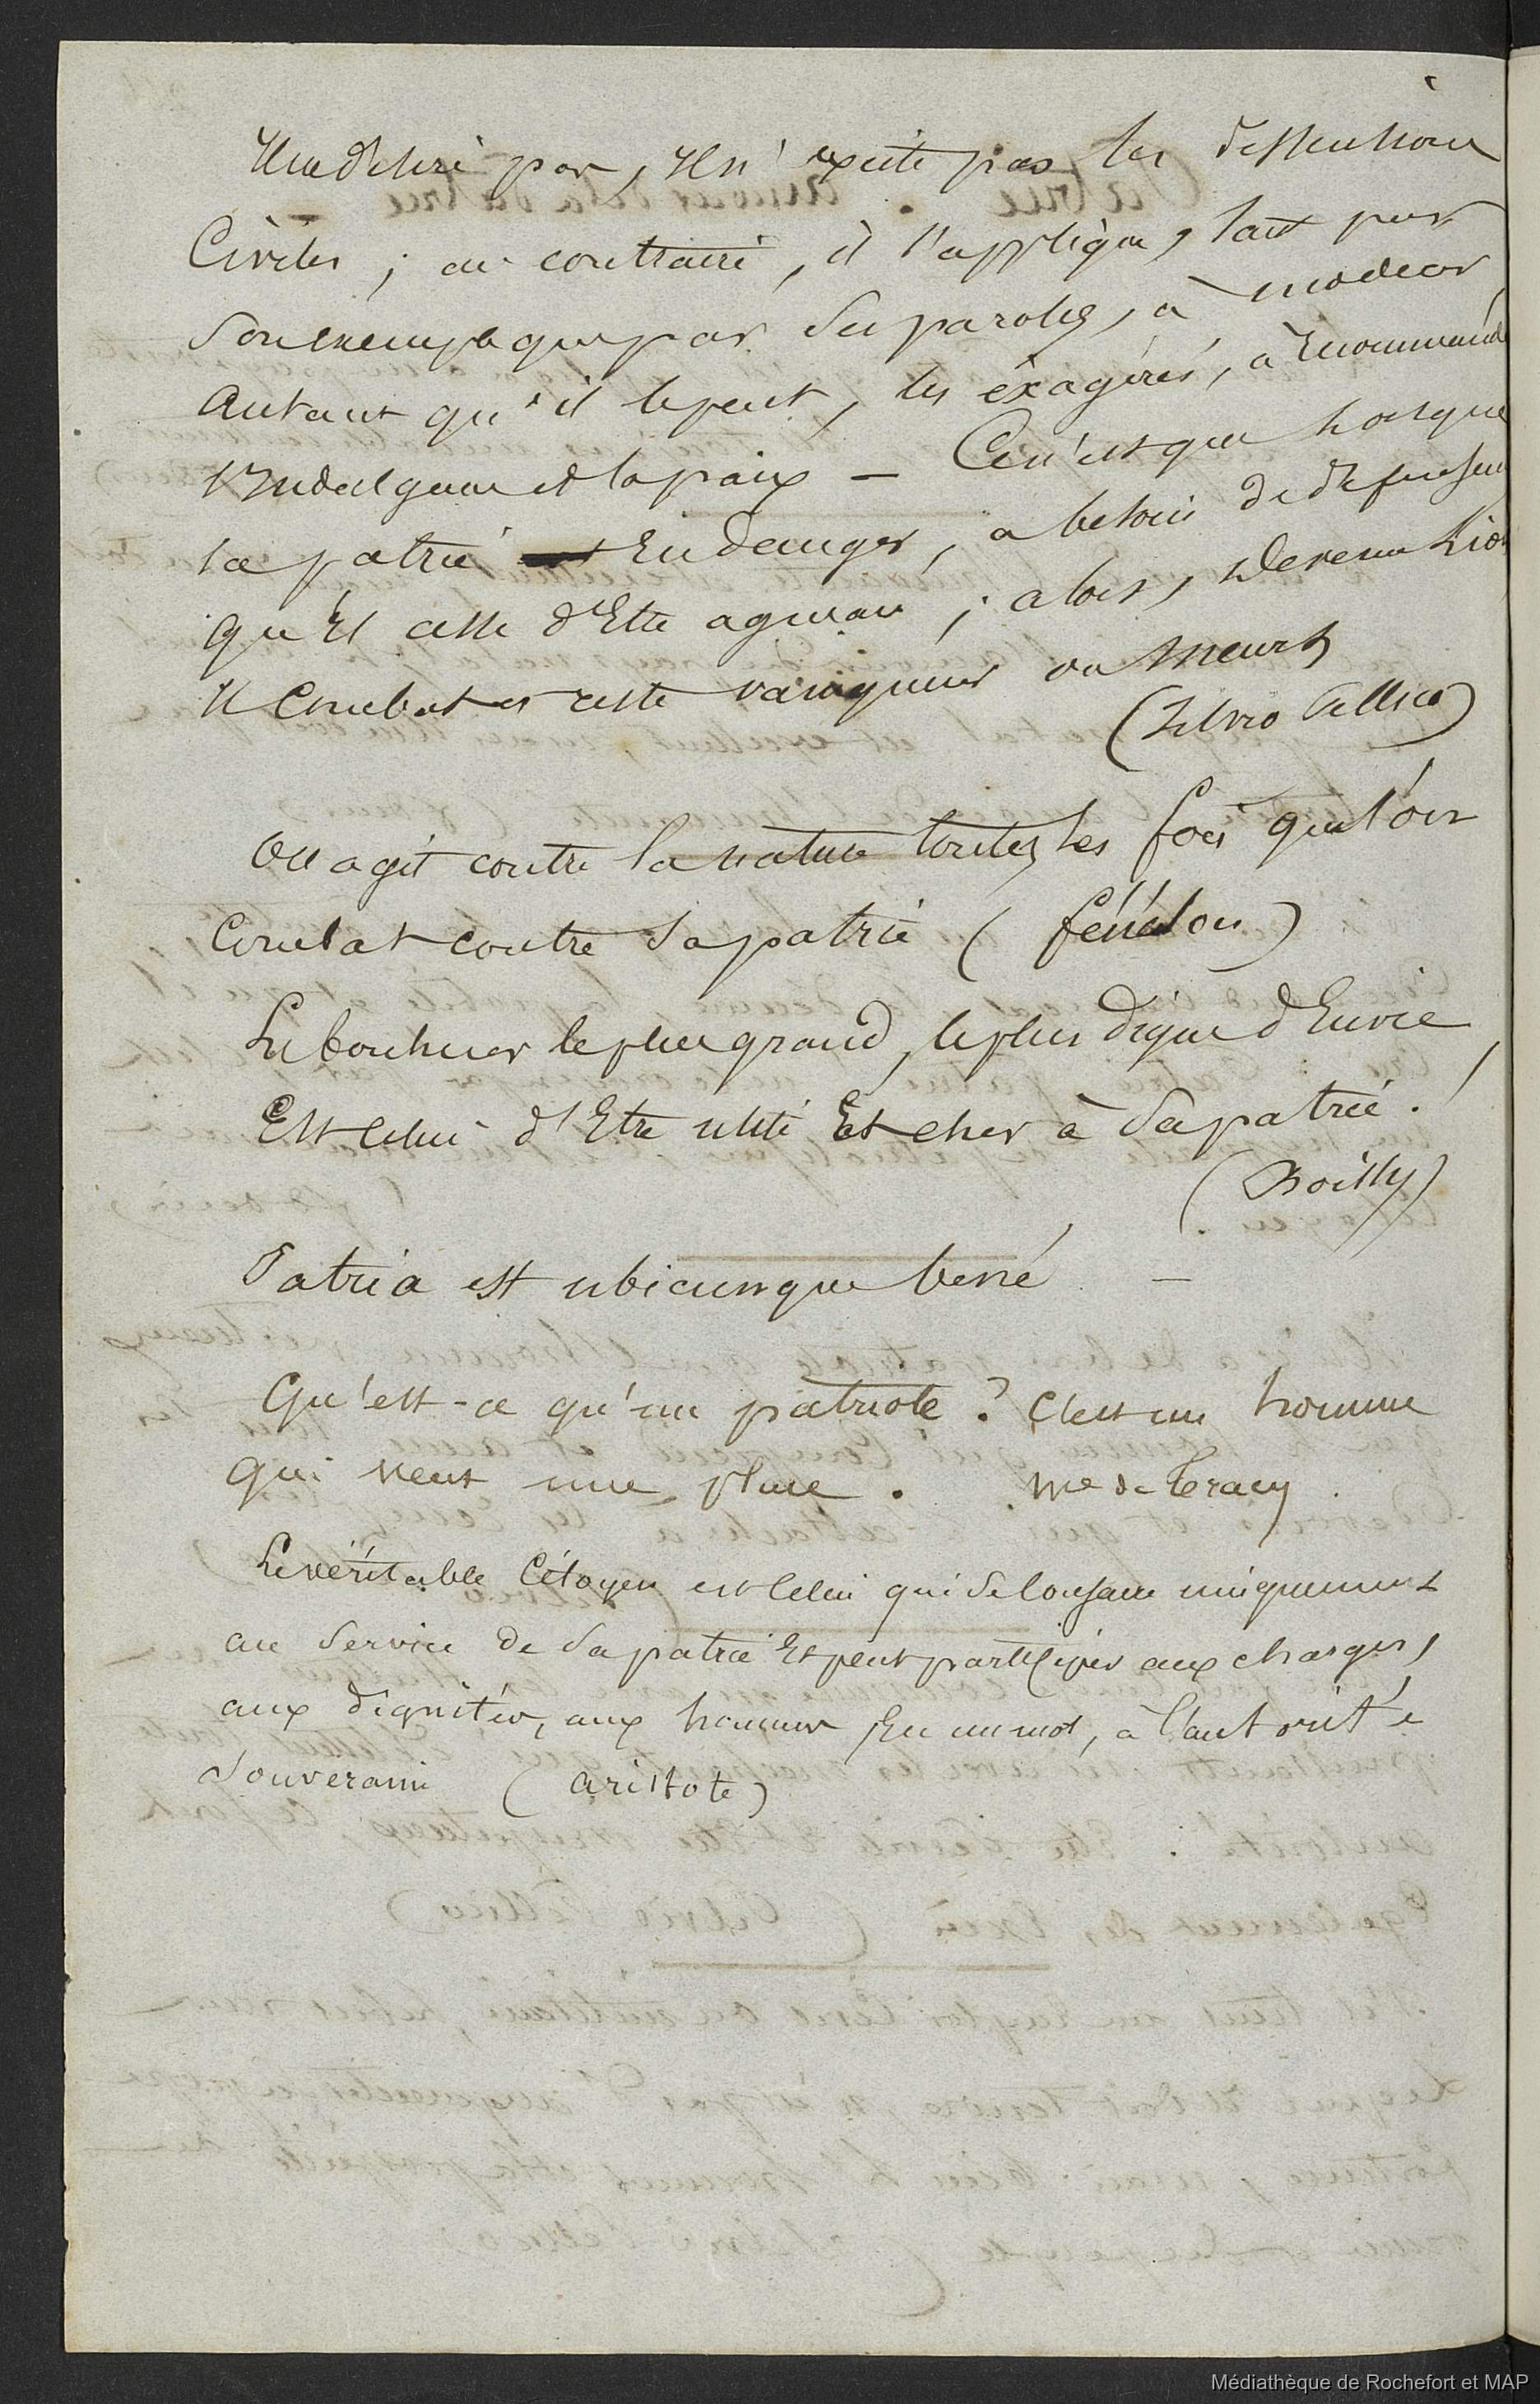 Il ne désire pas, Il n'excite pas les dissensions
Civiles ; au contraire, il s'applique, tant par
Son exemple que par ses paroles, à modérer
Autant qu'il le peut, les éxagérés, à Recommand
l'Indulgence et la paix — Ce n'est que lorsque
la patrie En danger, a besoin de defenseur
qu'Il cesse d'Etre agneau ; alors, devenu Lion
Il Combat et reste vainqueur ou meurt
(Silvio Pellico)
On agit contre la nature toutes les fois que l'on
Combat contre sa patrie ( fénélon )
Le bonheur le plus grand, le plus digne d'Envie,
Est celui d'Etre utile Et cher à sa patrie !
( Boissy )
Patria est ubicunque bené —
Qu'est-ce qu'un patriote ? C'est un homme
qui veut une place . Me de Tracy .
Le véritable Citoyen est Celui qui se consacre uniquement
au service de sa patrie Et peut participer aux charges,
aux dignités, aux honneurs, En un mot, à l'autorité
Souveraine ( aristote )
Médiathèque de Rochefort et MAP